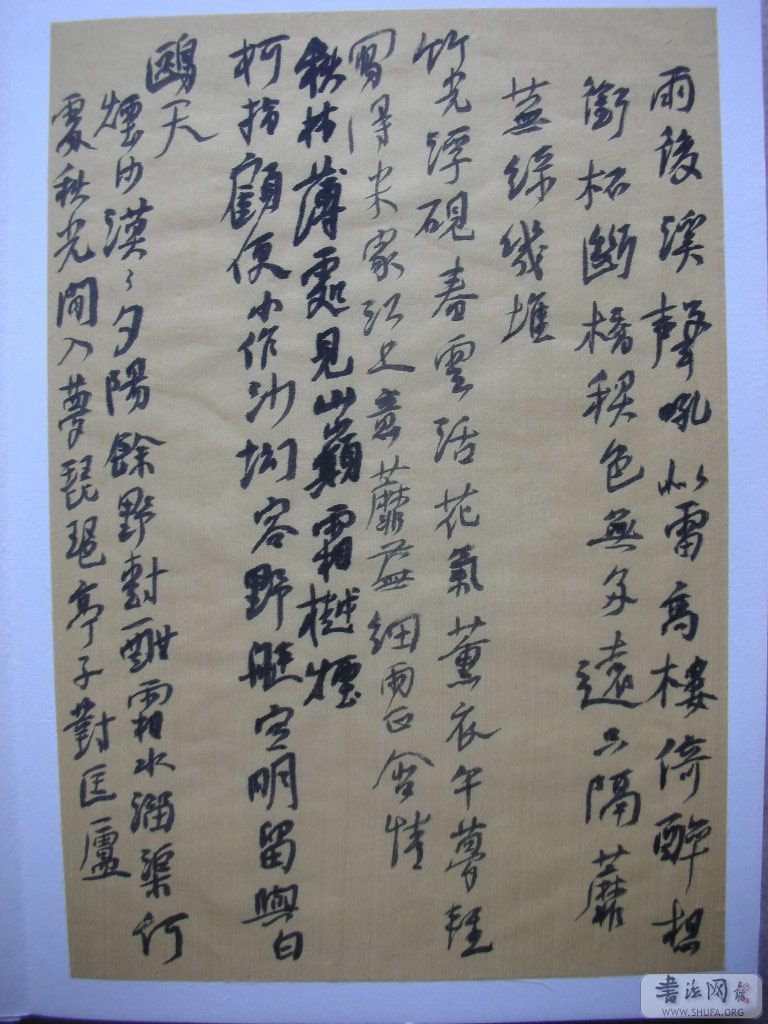 雨後溪聲吼似雷高樓倚醉想
銜杯斷橋秋色無多遠只隔蘼
蕪綠幾堆
竹光浮硯春雲活花氣薰衣午夢輕
寫得米家江上意蘼蕪細雨正含情
秋林薄處見山巔霜樹煙
柯指顧便小作沙坳容野艇空明留與白
鷗天
煙沙漠〻夕陽餘野樹酣霜水溜渠何
處秋光閒入夢琵琶亭子對匡廬
書法网
WWW.SHUFA.ORG